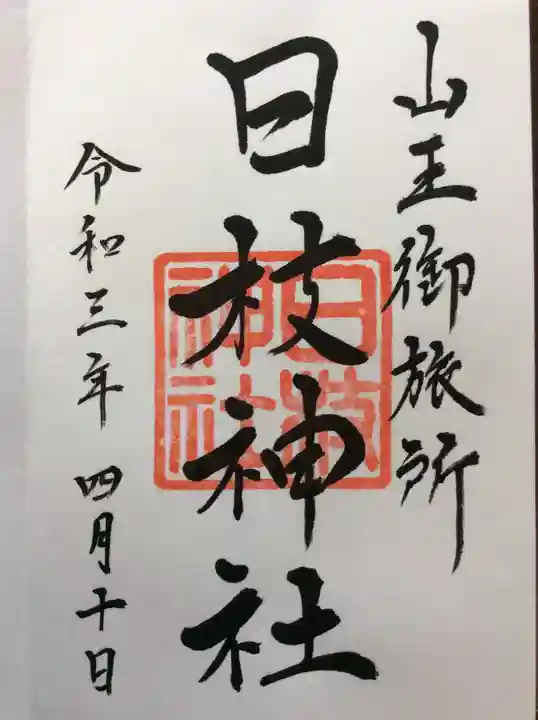 山王御旅所
日枝神社
日枝神社
令和三年 四月十日